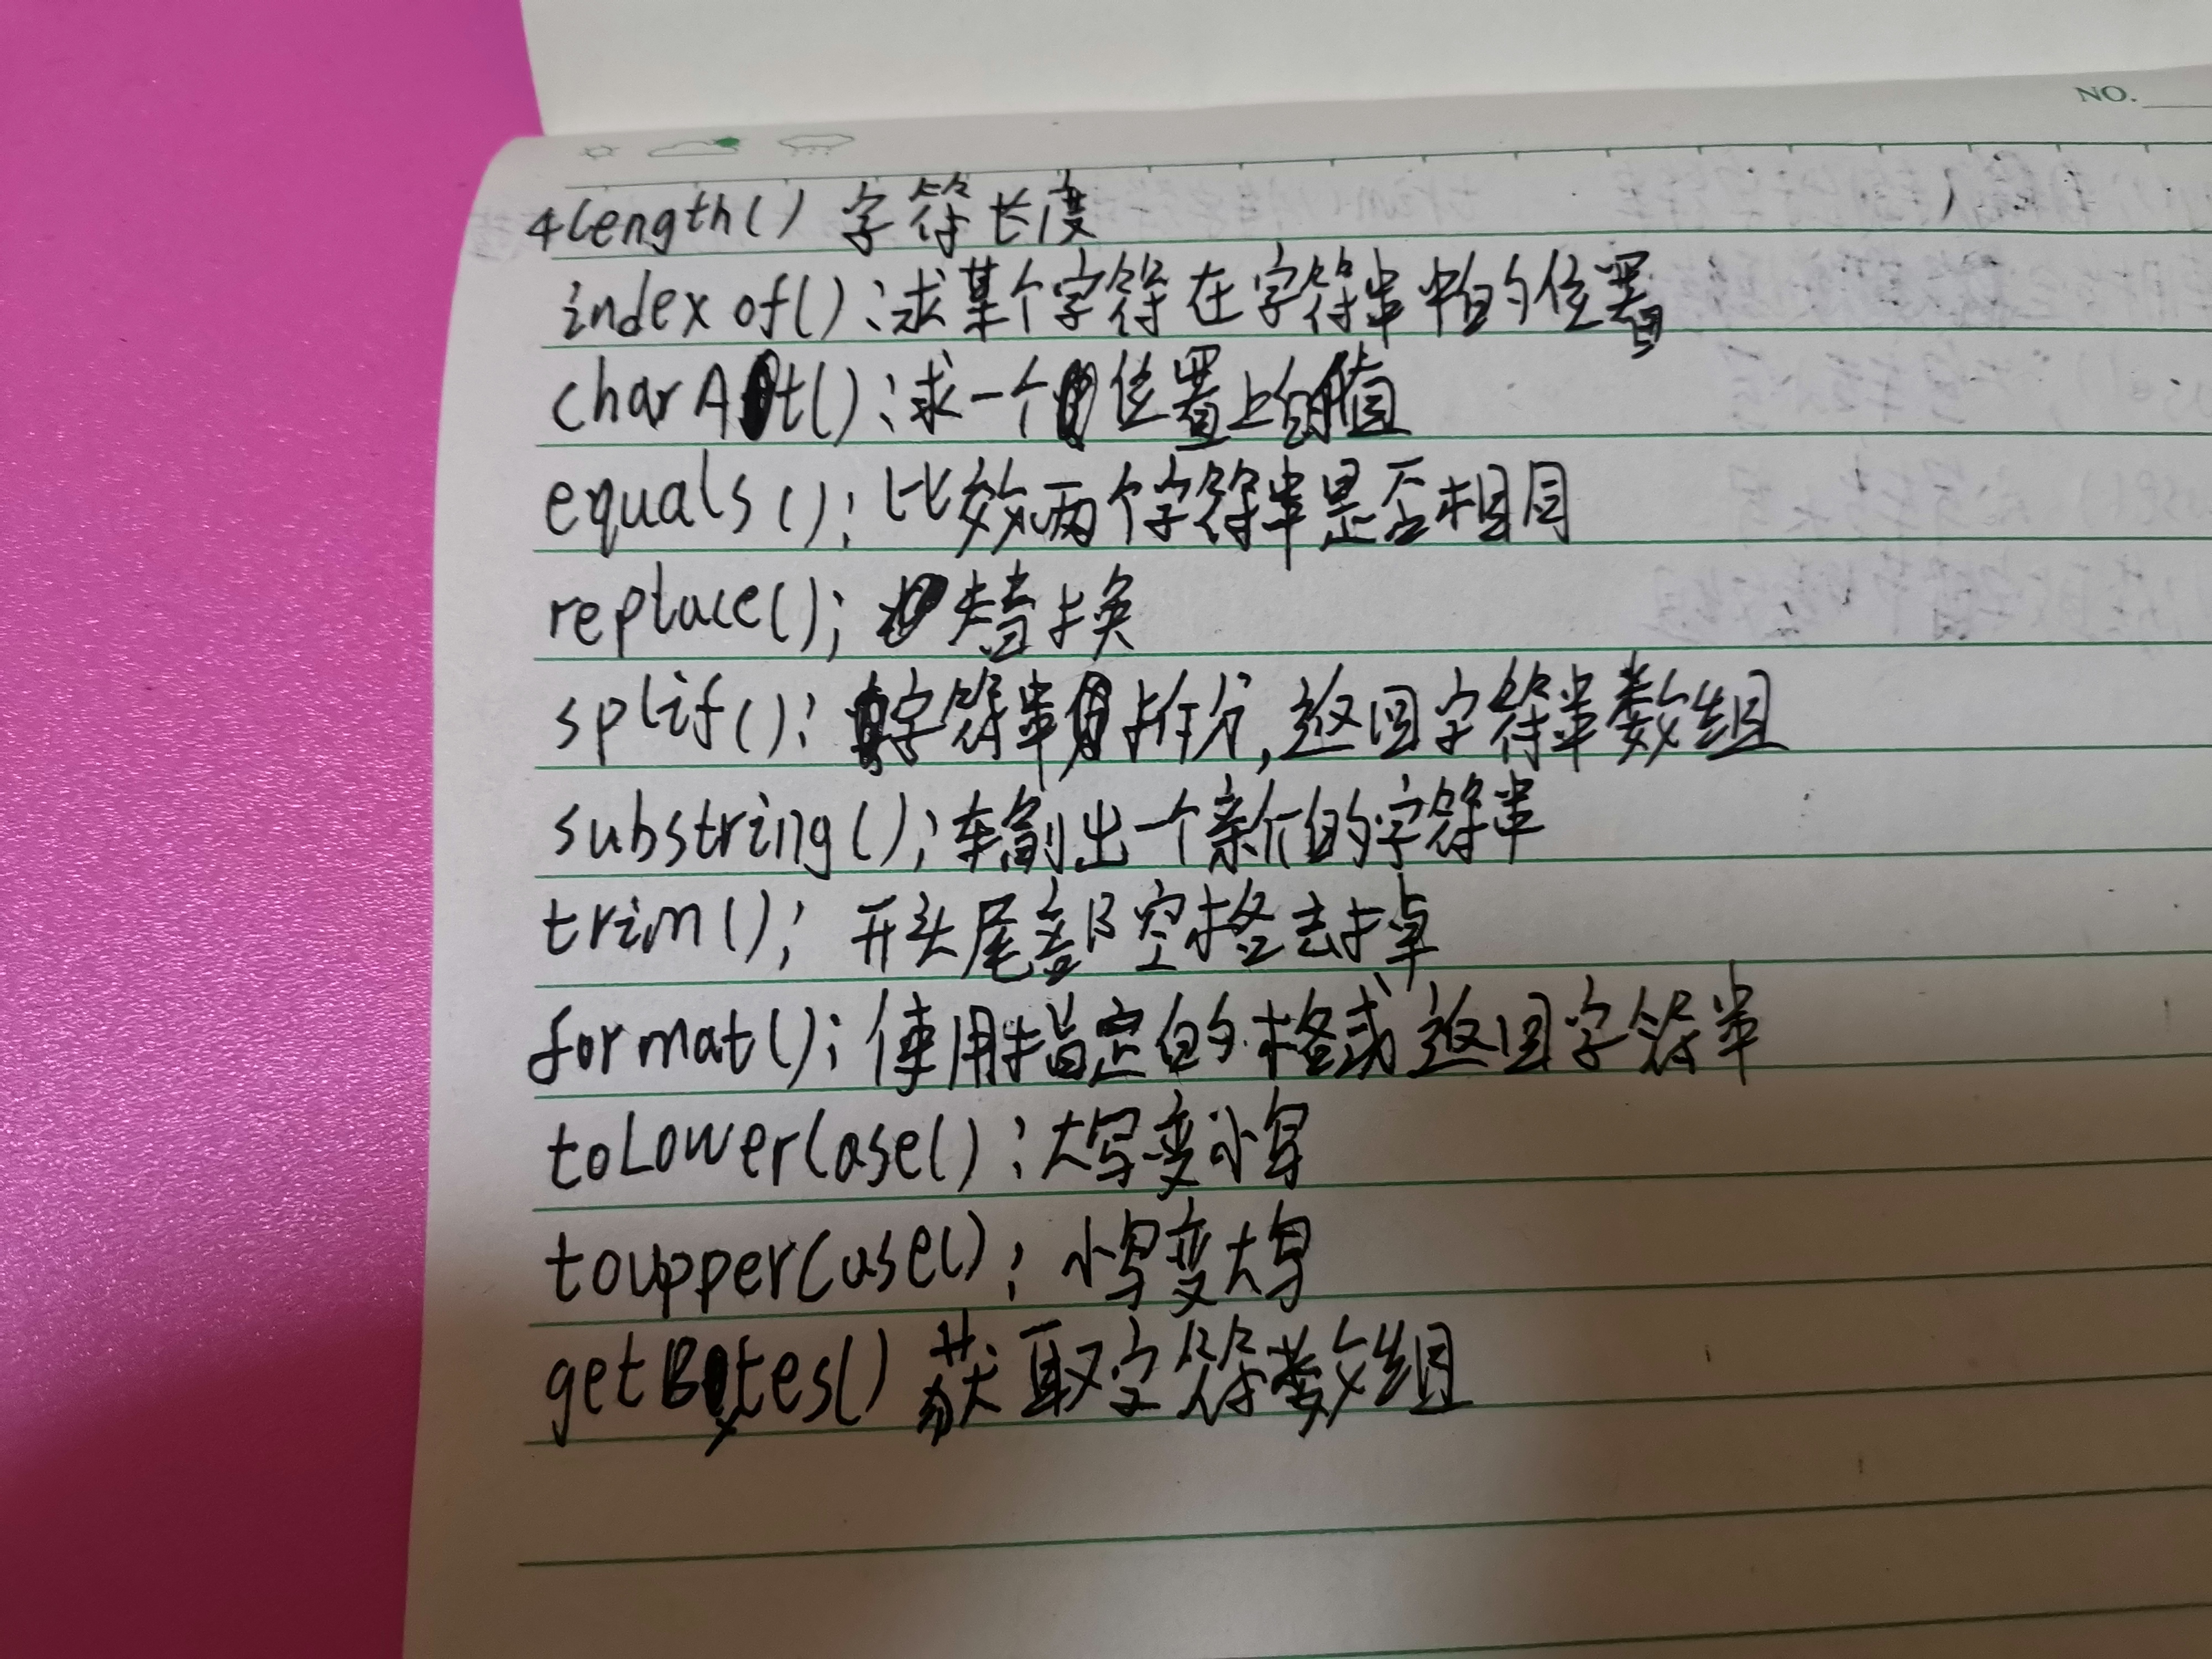 NO.
4length() 字符长度
index of():求某个字符在字符串中的位置
charAt():求一个位置上的值
equals():比较两个字符串是否相同
replace();替换
splif():字符串拆分,返回字符串数组
substring();输出一个新的字符串
trim();开头尾部空格去掉
format();使用指定的格式返回字符串
toLowerCase():大写变小写
toupperCase():小写变大写
getBytes() 获取字符数组